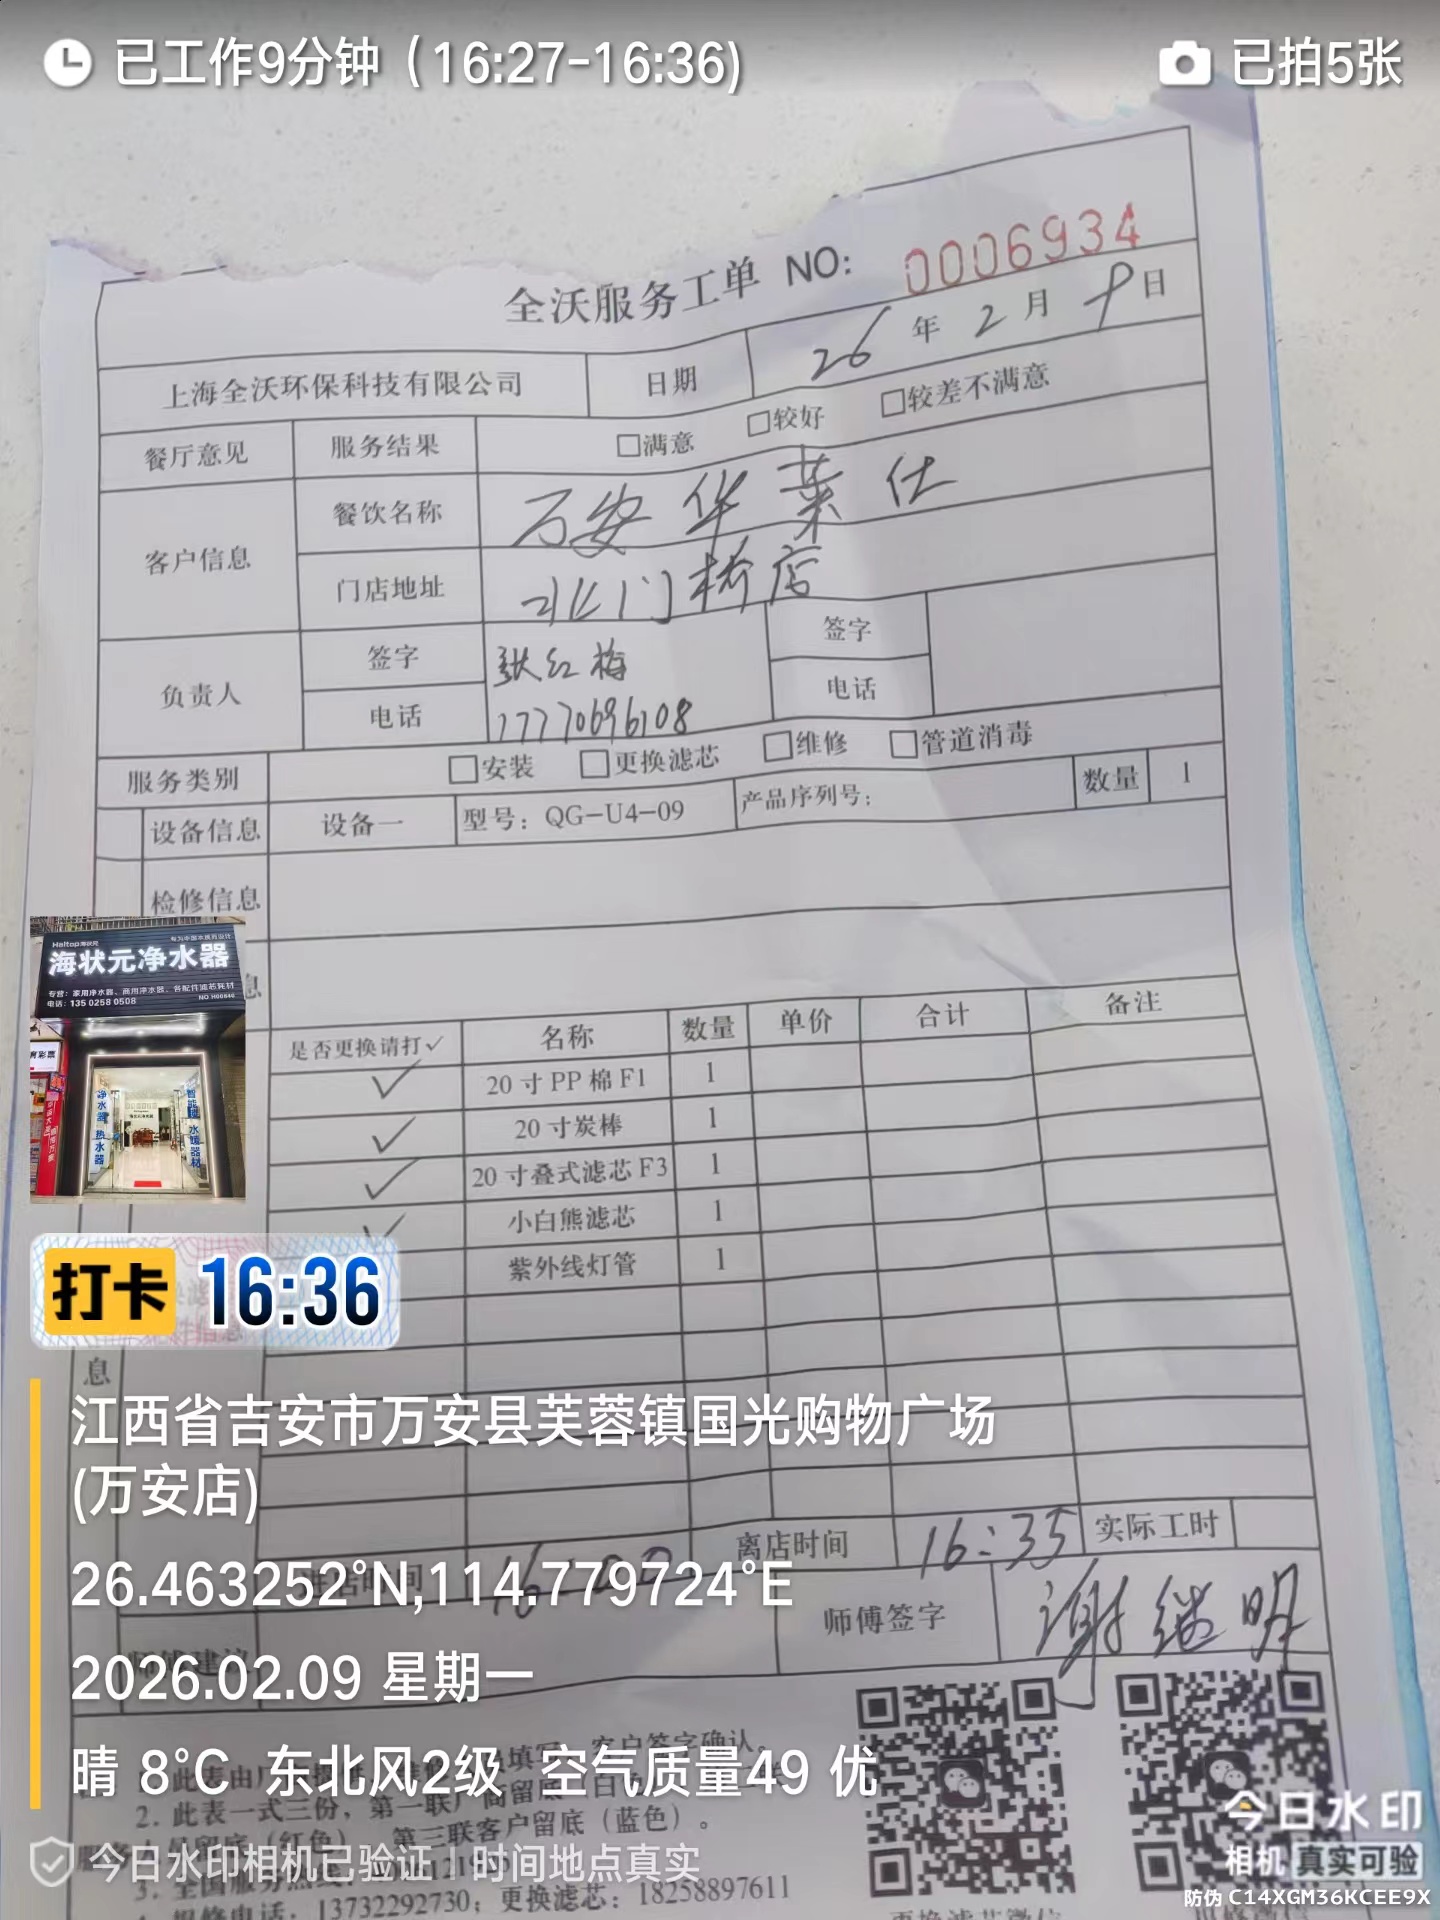 已工作9分钟（16:27-16:36)
已拍5张
全沃服务工单 NO: 0006934
上海全沃环保科技有限公司 日期 26年2月9日
餐厅意见 服务结果 □满意 □较好 □较差不满意
客户信息 餐饮名称 万安华莱仕
门店地址 北门桥店
负责人 签字 张红梅 签字
电话 17770696108 电话
服务类别 □安装 □更换滤芯 □维修 □管道消毒
设备信息 设备一 型号：QG-U4-09 产品序列号： 数量 1
检修信息
息
是否更换请打✓ 名称 数量 单价 合计 备注
✓ 20寸PP棉F1 1
✓ 20寸炭棒 1
✓ 20寸叠式滤芯F3 1
✓ 小白熊滤芯 1
紫外线灯管 1
息
Haltop海状元
海状元净水器
专营：家用净水器、商用净水器、各配件滤芯耗材
电话：135 0258 0508
净水器 热水器
打卡 16:36
江西省吉安市万安县芙蓉镇国光购物广场
(万安店)
离店时间 16:35 实际工时
26.463252°N,114.779724°E
师傅签字 谢继明
师傅建议
2026.02.09 星期一
晴 8°C 东北风2级 空气质量49 优
填写，客户签字确认。
2. 此表一式三份，第一联厂商留底
留底（红色） 第三联客户留底（蓝色）。
今日水印相机已验证 | 时间地点真实
3. 全国服务热线
报修电话：13732292730；更换滤芯：18258897611
更换滤芯微信
今日水印
相机 真实可验
防伪 C14XGM36KCEE9X